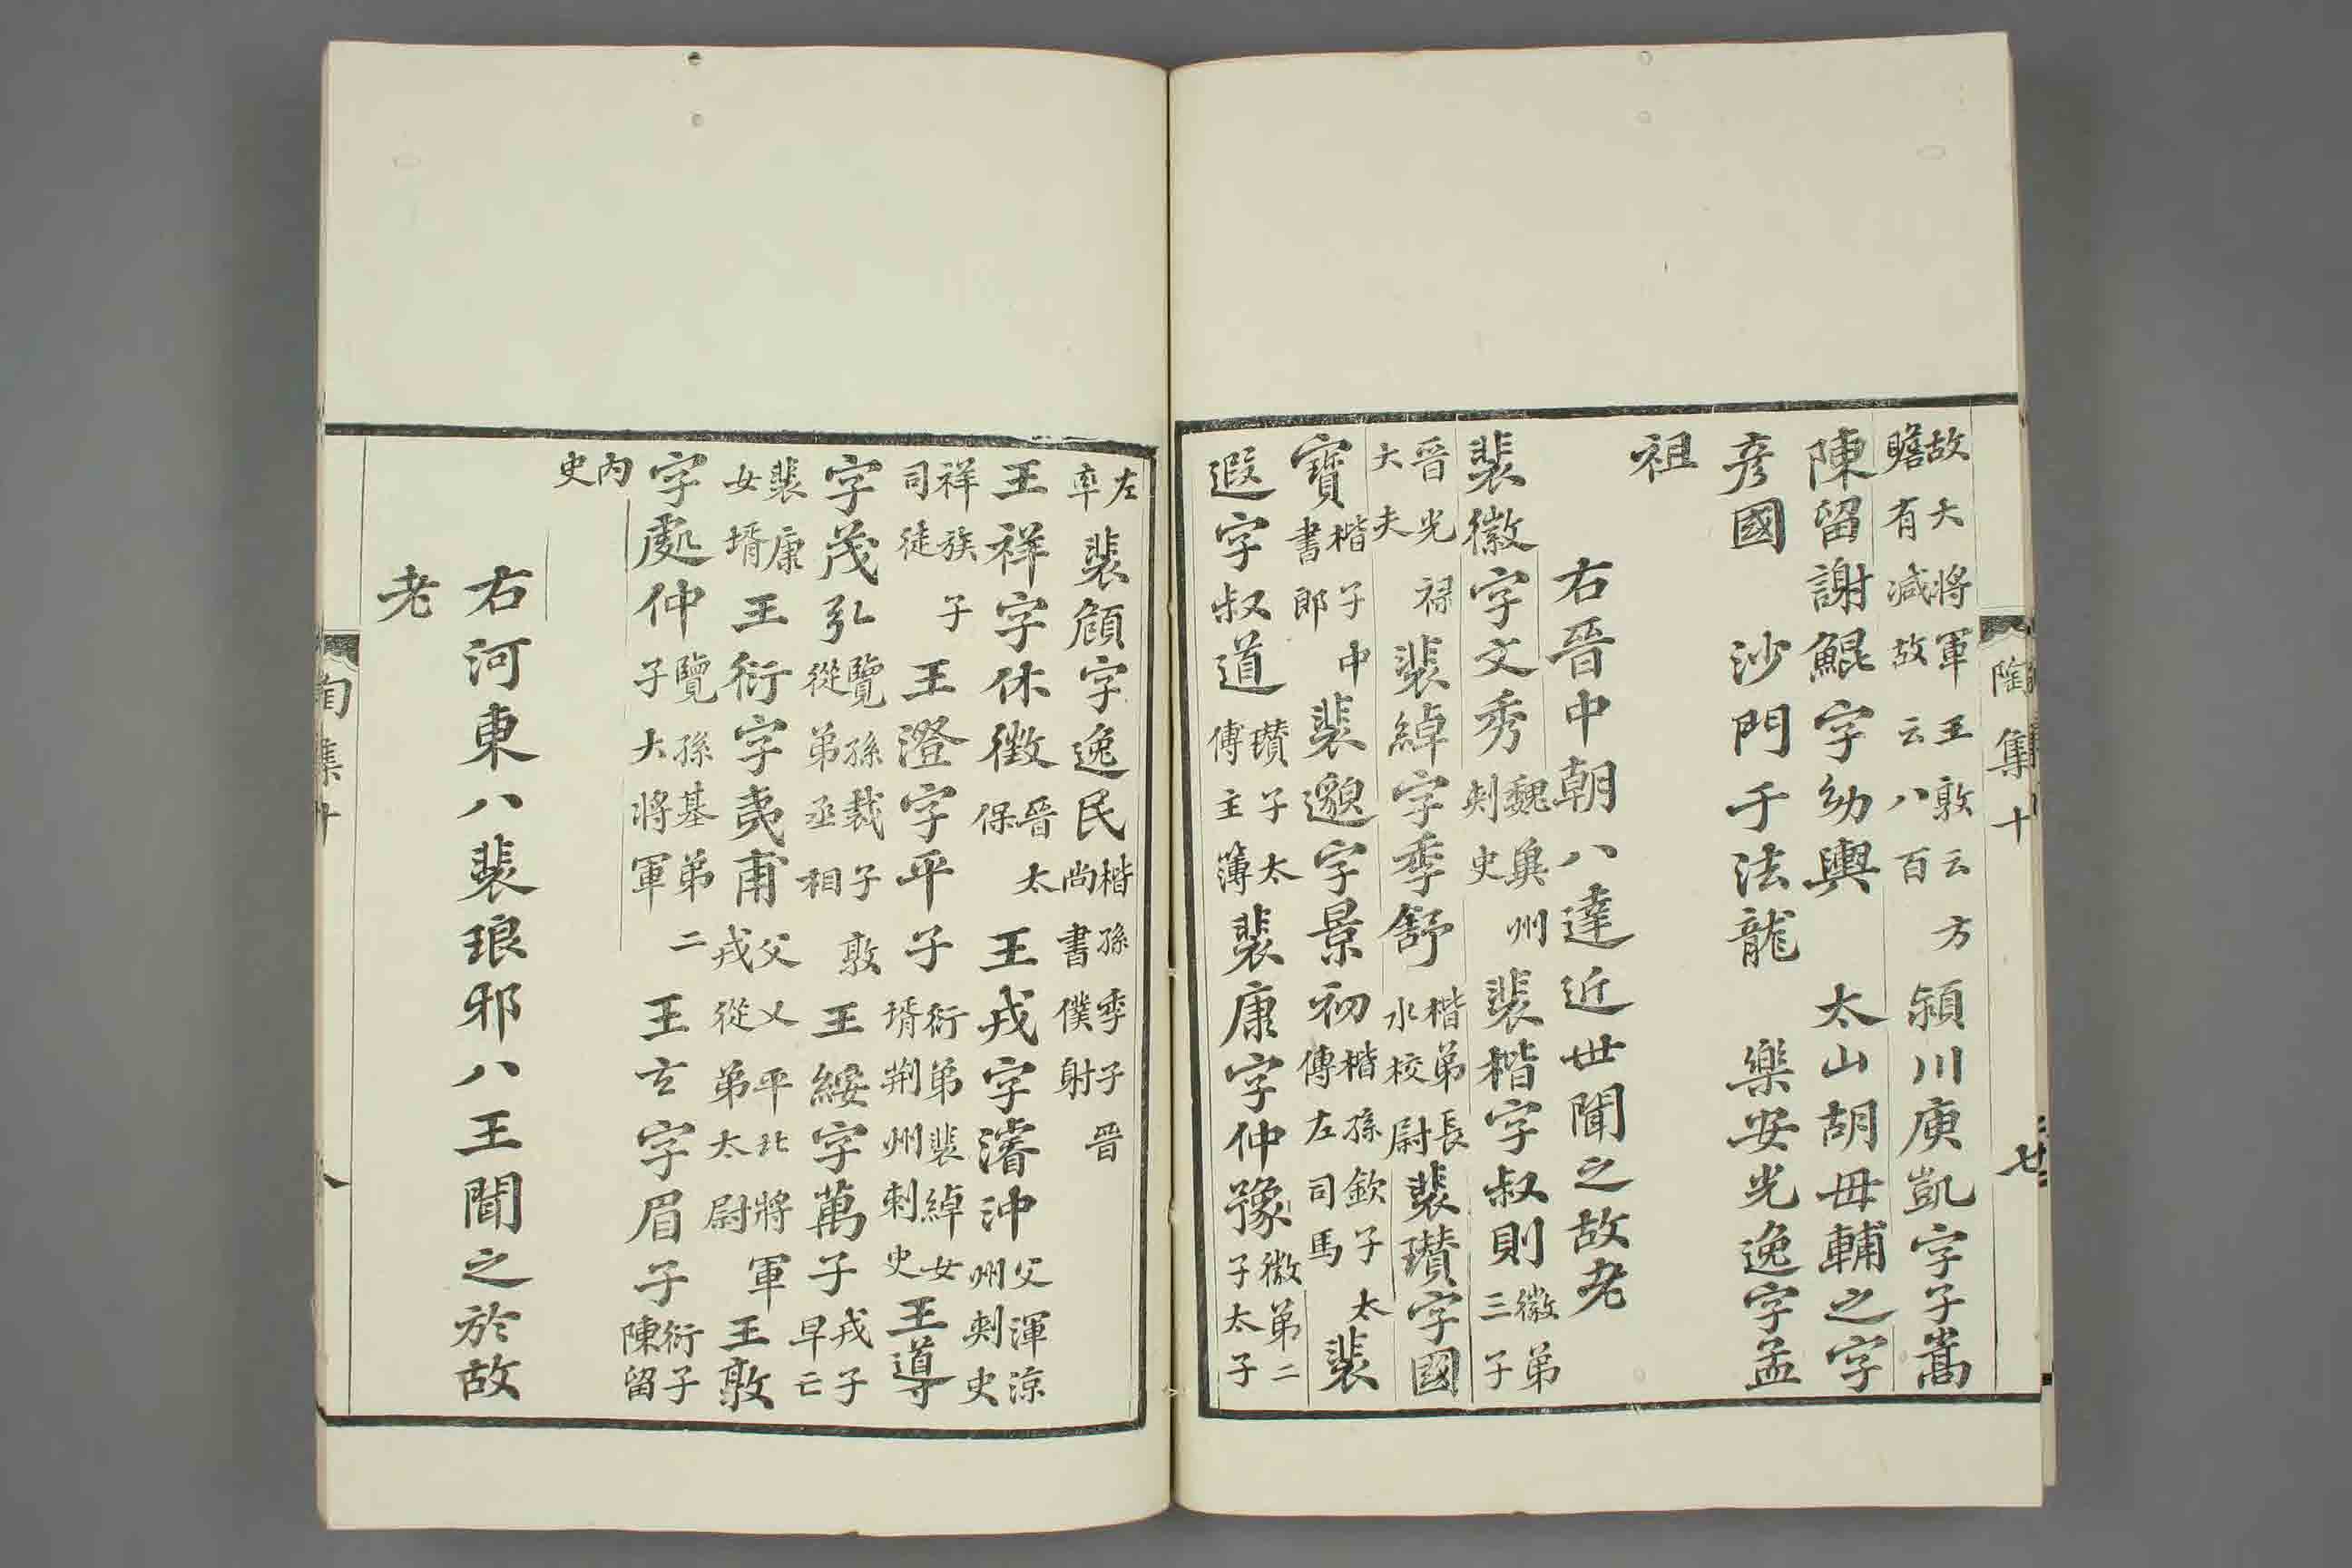 陶集十
故大將軍王敦云方瞻有減故云八百 潁川庾凱字子嵩
陳留謝鯤字幼輿 太山胡毋輔之字
彥國 沙門于法龍 樂安光逸字孟
祖
右晉中朝八達近世聞之故老
裴徽字文秀魏冀州刺史裴楷字叔則徽弟三子
晉光祿大夫裴綽字季舒楷弟長水校尉裴瓚字國
寶楷子中書郎裴邈字景初楷孫欽子太傅左司馬裴
遐字叔道瓚子太傅主薄裴康字仲豫徽弟二子太子
左率裴頠字逸民楷孫季子晉尚書僕射
王祥字休徵晉太保王戎字濬沖父渾涼州刺史
祥族子司徒王澄字平子衍弟裴綽女壻荆州刺史王導
字茂弘覽孫裁子敦從弟丞相王綏字萬子戎子早亡
裴康女壻王衍字夷甫父乂平北將軍戎從弟太尉王敦
字處仲覽孫基弟二子大將軍王玄字眉子衍子陳留
內史
右河東八裴琅邪八王聞之於故
老